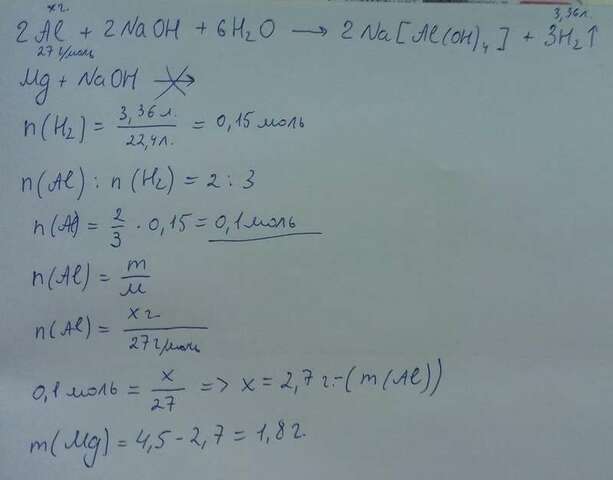 х г. 3,36 л.
2Al + 2NaOH + 6H₂O → 2Na[Al(OH)₄] + 3H₂↑
27 г/моль
Mg + NaOH ↛
n(H₂) = 3,36 л. / 22,4 л. = 0,15 моль
n(Al) : n(H₂) = 2 : 3
n(Al) = 2/3 · 0,15 = 0,1 моль
n(Al) = m/M
n(Al) = х г. / 27 г/моль
0,1 моль = х/27 => х = 2,7 г. - (m(Al))
m(Mg) = 4,5 - 2,7 = 1,8 г.